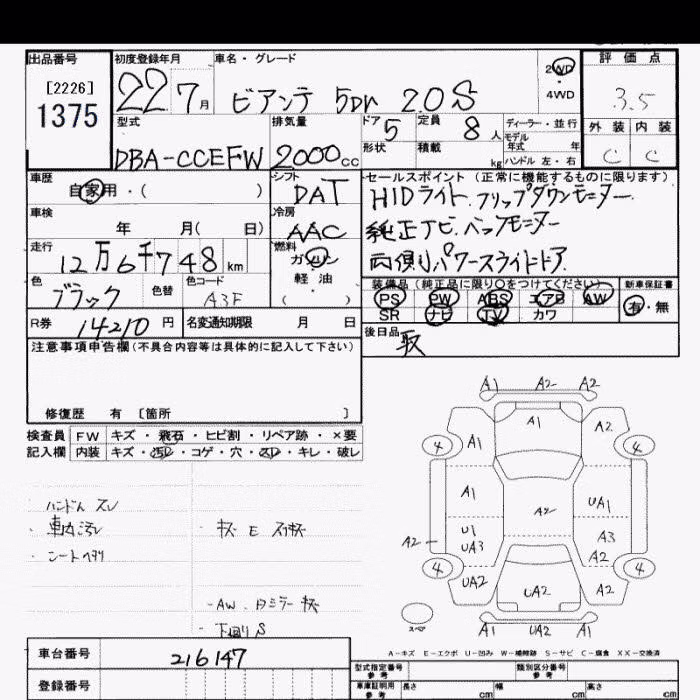 出品番号 初度登録年月 車名・グレード 2WD 評価点
[2226] 22 7月 ビアンテ 5Dr 20S 4WD 3.5
1375
型式 排気量 ドア 5 定員 8人 ディーラー・並行 外装 内装
モデル年式 年
DBA-CCEFW 2000cc 形状 積載 kg ハンドル 左・右 C C
車歴 シフト セールスポイント (正常に機能するものに限ります)
自家用・( ) DAT HIDライト.フリップダウンモニター.
車検 冷房
年 月( 日) AAC 純正ナビ.バックモニター
走行 燃料
12万6千748km ガソリン 両側パワースライドドア.
色 色替 色コード 軽油 装備品 (純正品に限り○をつけてください) 新車保証書
ブラック A3F ( ) PS PW ABS エアB AW 有・無
SR ナビ TV カワ
R券 14210円 名変通知期限 月 日 後日品
取
注意事項申告欄(不具合内容等は具体的に記入して下さい)
修復歴 有 [箇所 ]
検査員 FW キズ・飛石・ヒビ割・リペア跡・×要
記入欄 内装 キズ・汚レ・コゲ・穴・スレ・キレ・破レ
A1 A2 A2
A1 A2
4 A1 4
A1 A2 UA1
・ハンドル スレ
・車内汚レ ・キズ E スリキズ
・シートヘタリ
U1 A3
A2 UA3 A2
4 4
UA2 UA2 A2
・AW.Dミラーキズ
・下回りS
スペア A1 UA2 A1
A-キズ E-エクボ U-凹み W-補修跡 S-サビ C-腐食 XX-交換済
車台番号 216147
型式指定番号 参考 類別区分番号 参考
登録番号
車庫証明用 参考 長さ cm 幅 cm 高さ cm